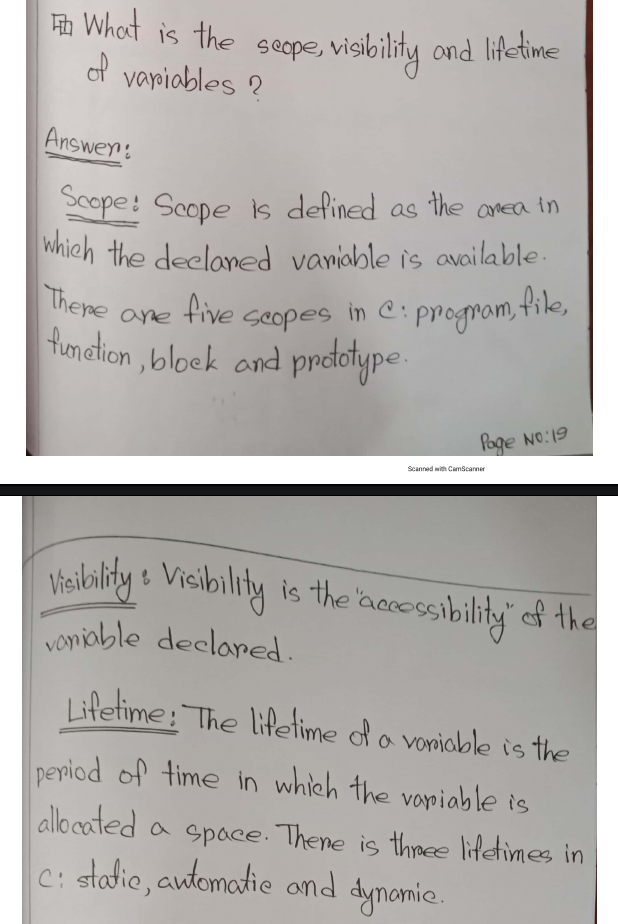 What is the scope, visibility and lifetime
of variables ?
Answer:
Scope: Scope is defined as the area in
which the declared variable is available.
There are five scopes in C: program, file,
function, block and prototype.
Page No:19
Scanned with CamScanner
Visibility: Visibility is the "accessibility" of the
variable declared.
Lifetime: The lifetime of a variable is the
period of time in which the variable is
allocated a space. There is three lifetimes in
C: static, automatic and dynamic.